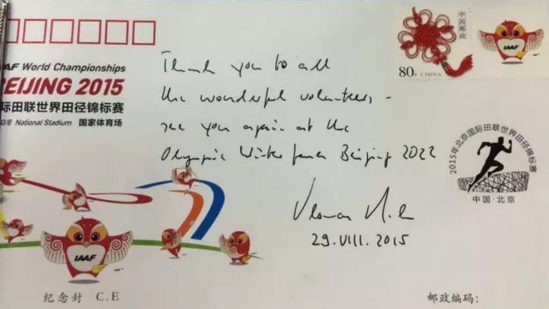 IAAF World Championships
BEIJING 2015
国际田联世界田径锦标赛
30/8 National Stadium 国家体育场
中国邮政
80分 CHINA
IAAF
Thank you to all
the wonderful volunteers -
see you again at the
Olympic Winter Games Beijing 2022
29.VIII.2015
2015年北京国际田联世界田径锦标赛
中国·北京
IAAF
纪念封 C.E
邮政编码: